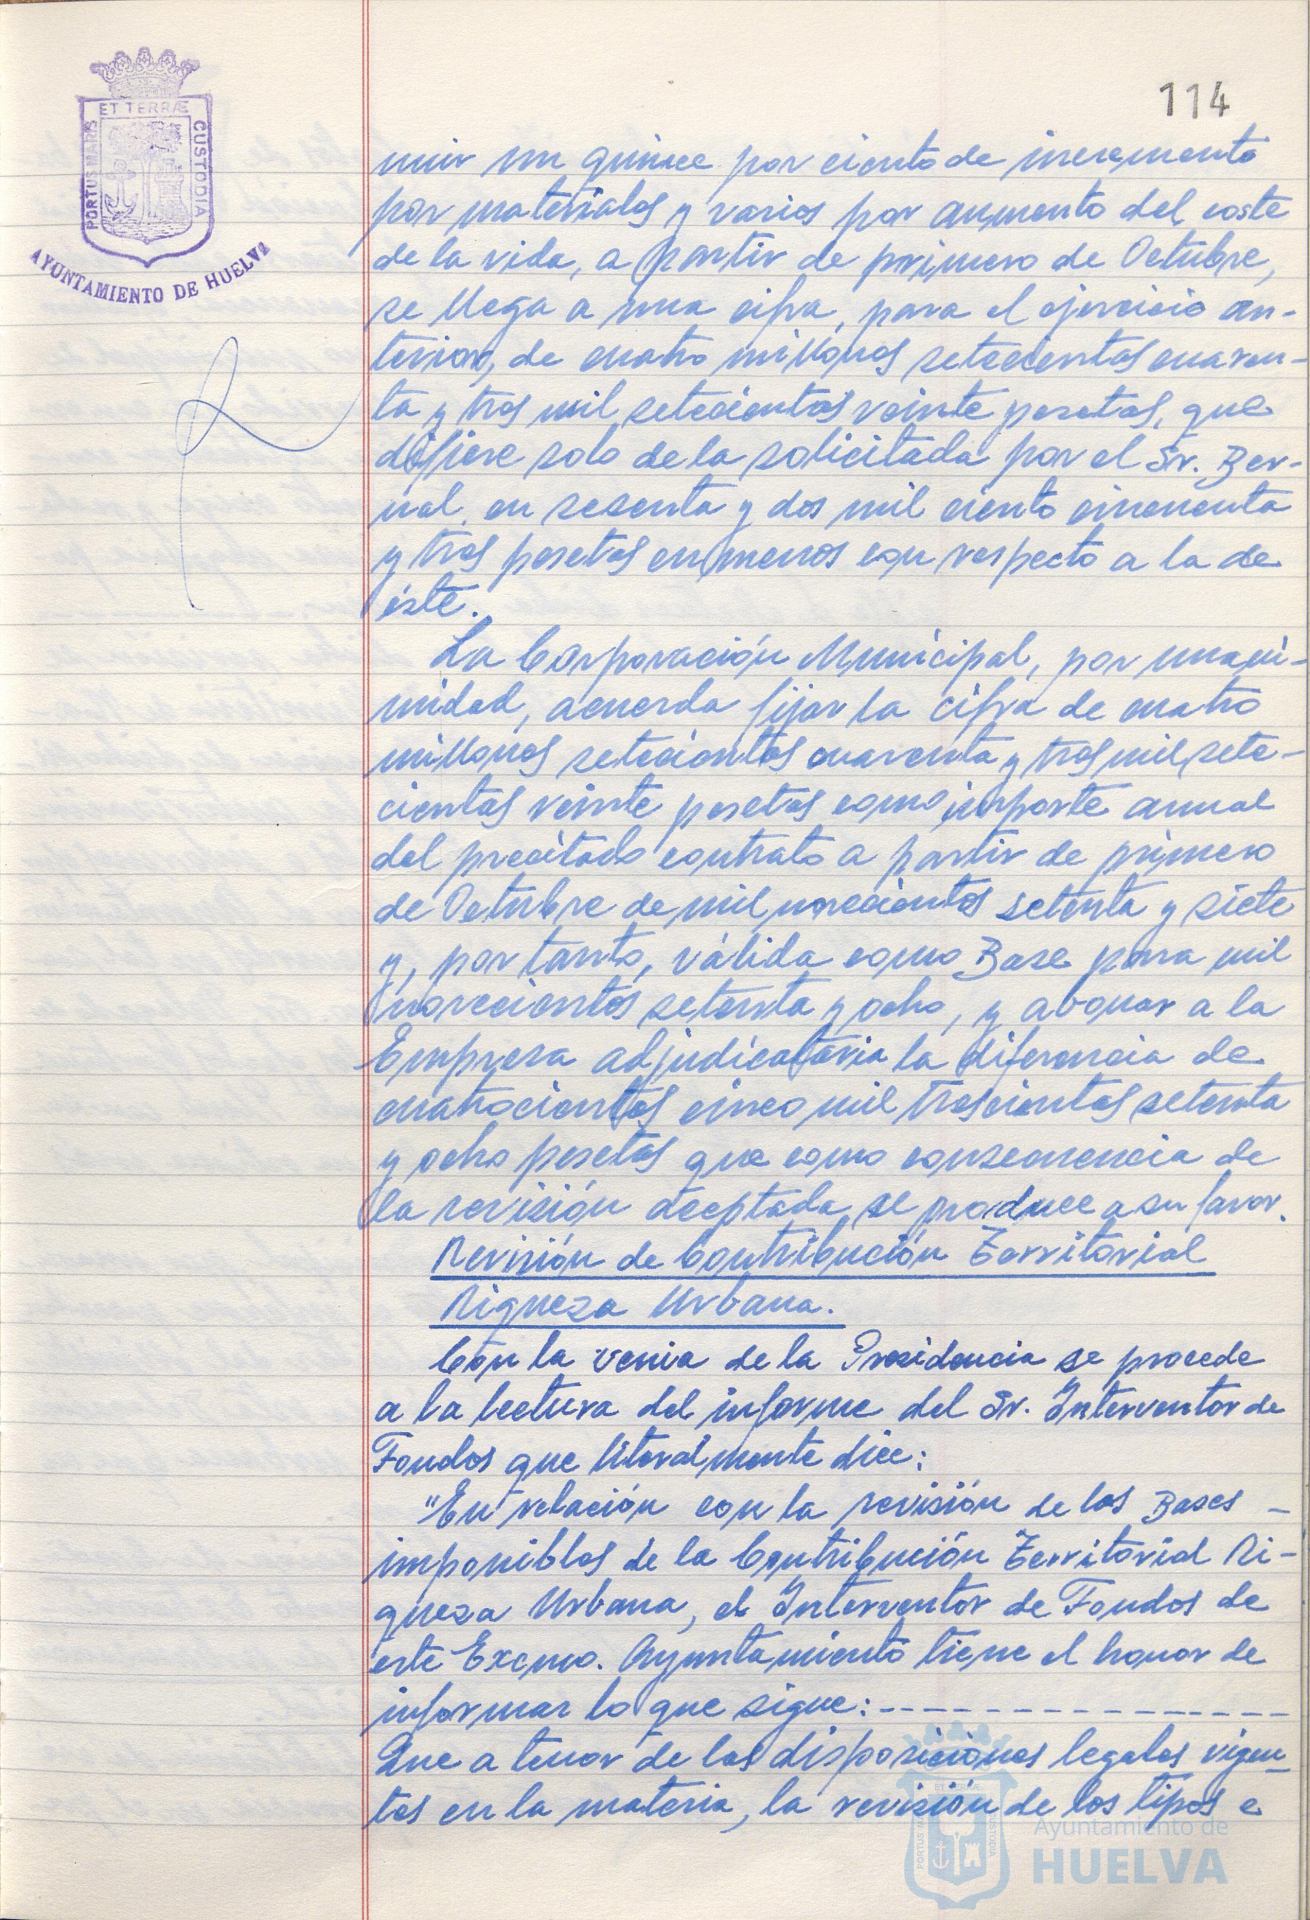 ET TERRÆ
PORTUS MARIS
CUSTODIA
AYUNTAMIENTO DE HUELVA
114
nuir un quince por ciento de incremento
por materiales y varios por aumento del coste
de la vida, a partir de primero de Octubre,
se llega a una cifra, para el ejercicio an-
terior, de cuatro millones setecientas cuaren-
ta y tres mil setecientas veinte pesetas, que
difiere solo de la solicitada por el Sr. Ber-
nal, en sesenta y dos mil ciento cincuenta
y tres pesetas en menos con respecto a la de
éste.
La Corporación Municipal, por unani-
midad, acuerda fijar la cifra de cuatro
millones setecientas cuarenta y tres mil sete-
cientas veinte pesetas como importe anual
del precitado contrato a partir de primero
de Octubre de mil novecientos setenta y siete
y, por tanto, válida como Base para mil
novecientos setenta y ocho, y abonar a la
Empresa adjudicataria la diferencia de
cuatrocientas cinco mil trescientas setenta
y ocho pesetas que como consecuencia de
la revisión aceptada se produce a su favor.
Revisión de Contribución Territorial
Riqueza Urbana.
Con la venia de la Presidencia se procede
a la lectura del informe del Sr. Interventor de
Fondos que literalmente dice:
"En relación con la revisión de las Bases -
imponibles de la Contribución Territorial Ri-
queza Urbana, el Interventor de Fondos de
este Excmo. Ayuntamiento tiene el honor de
informar lo que sigue: - - - - - - - - - - - - - - -
Que a tenor de las disposiciones legales vigen-
tes en la materia, la revisión de los tipos e
Ayuntamiento de
HUELVA